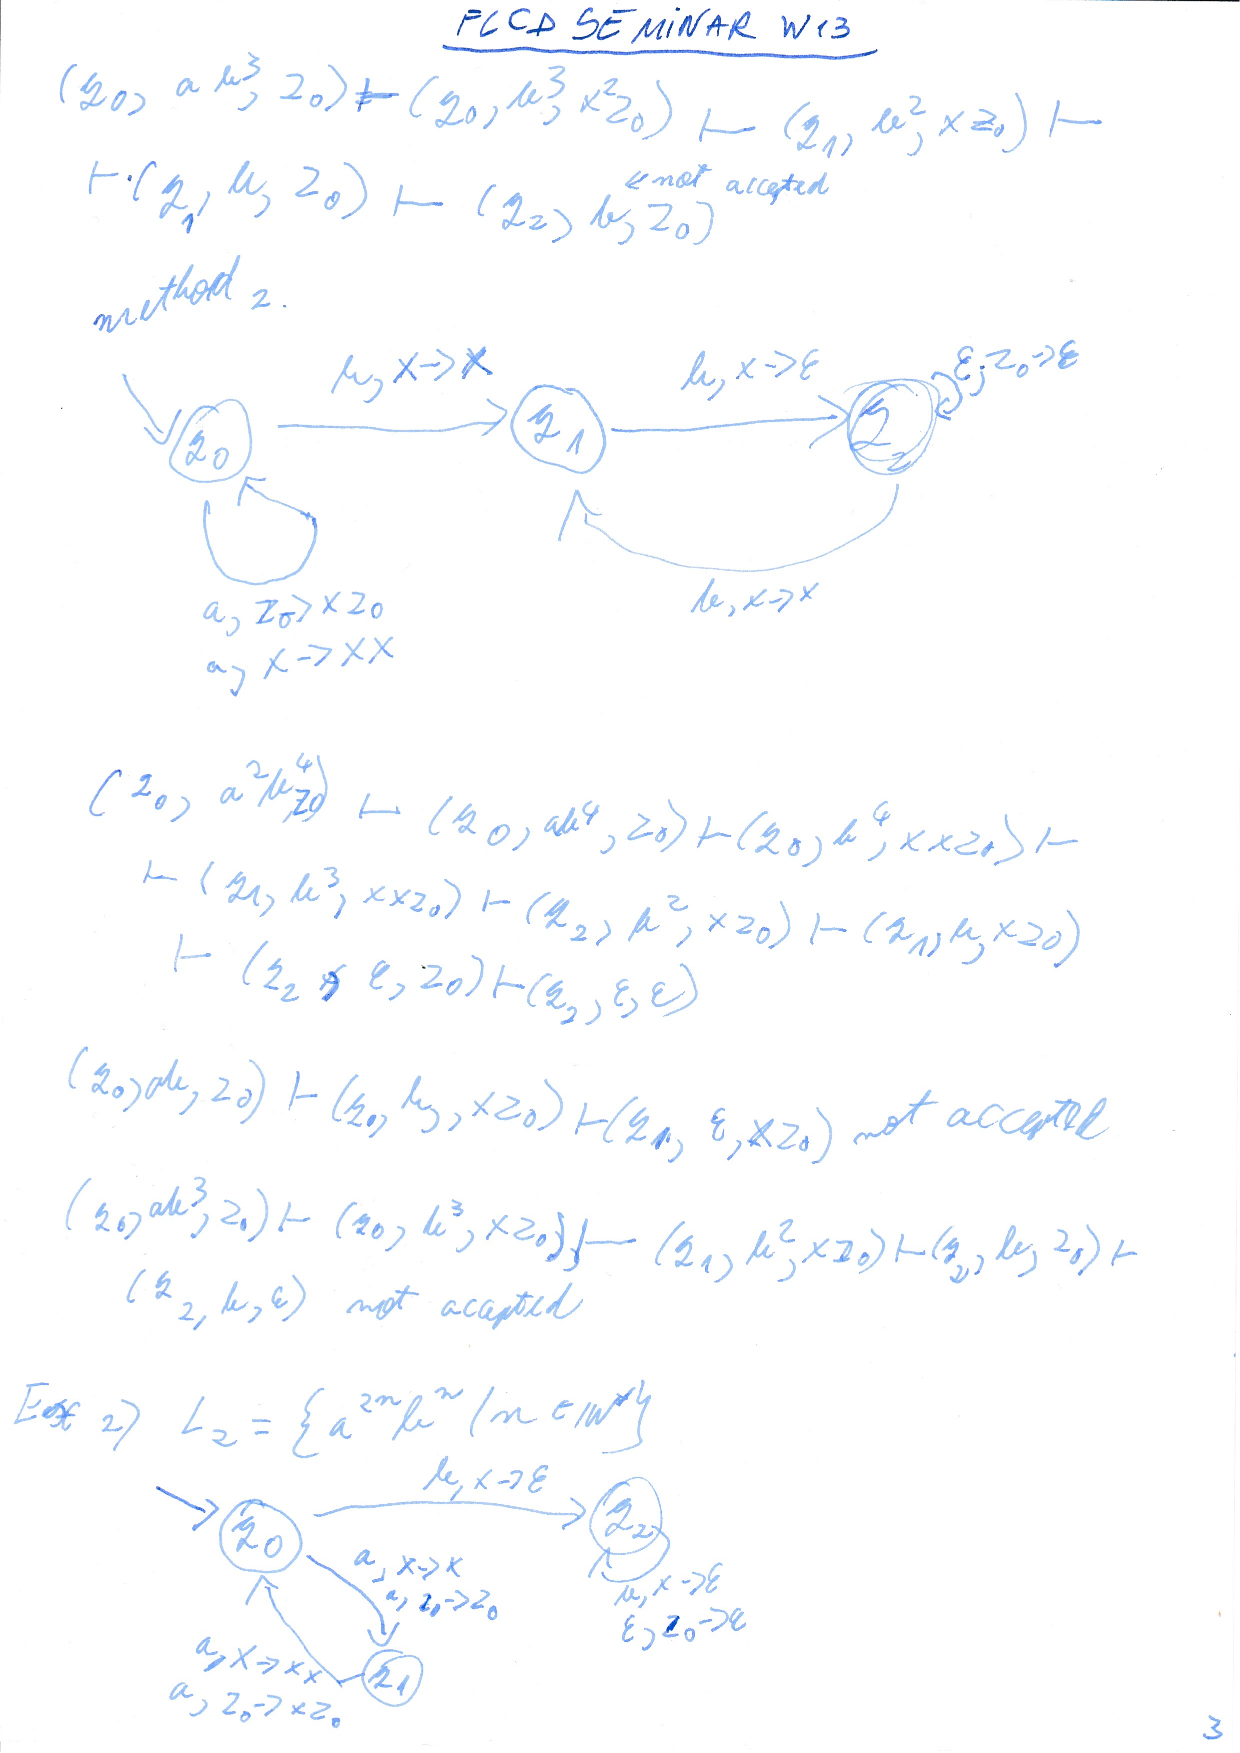 FLCD SEMINAR W13
(q0, ab³, Z0) ⊢ (q0, b³, x²Z0) ⊢ (q1, b², xZ0) ⊢
⊢ (q1, b, Z0) ⊢ (q2, b, Z0) ← not accepted
method 2.
b, X->X
b, x->ε
ε, Z0->ε
q0
q1
q2
b, x->x
a, Z0->XZ0
a, X->XX
(q0, a²b⁴, Z0) ⊢ (q0, ab⁴, Z0) ⊢ (q0, b⁴, xxZ0) ⊢
⊢ (q1, b³, xxZ0) ⊢ (q2, b², xZ0) ⊢ (q1, b, xZ0)
⊢ (q2, ε, Z0) ⊢ (q2, ε, ε)
(q0, ab, Z0) ⊢ (q0, b, xZ0) ⊢ (q1, ε, xZ0) not accepted
(q0, ab³, Z0) ⊢ (q0, b³, xZ0) ⊢ (q1, b², xZ0) ⊢ (q2, b, Z0) ⊢
(q2, b, ε) not accepted
Ex 2) L2 = {a²ⁿbⁿ | n ∈ IN*}
b, x->ε
q0
q2
a, x->x
a, Z0->Z0
b, x->ε
ε, Z0->ε
a, X->xx
a, Z0->xZ0
q1
3